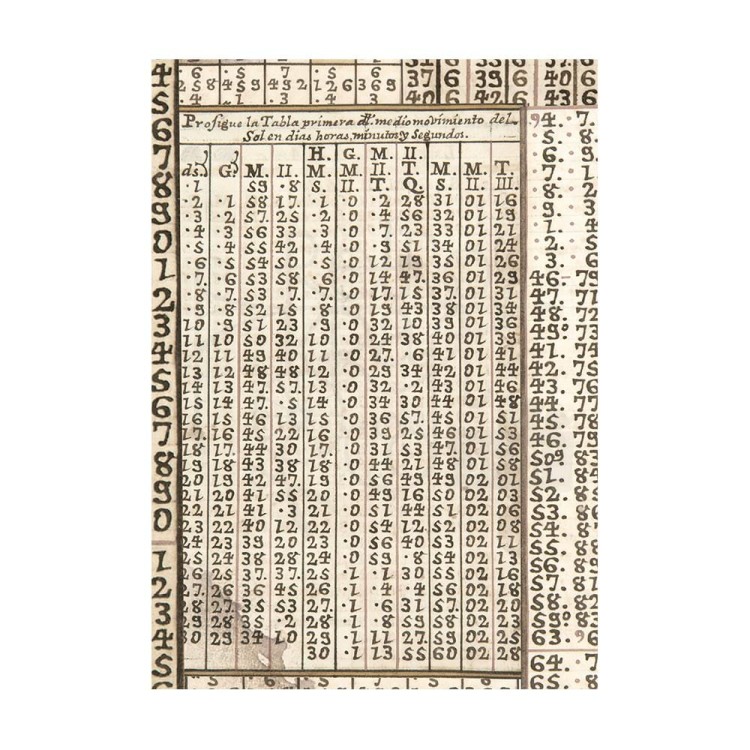 ·6 ·5 7 ·5 ·6 ·5
258 459 492 126 369
37 6 39 6 40 6
40 6 42 6 43 6
Prosigue la Tabla primera dl. medio movimiento del
Sol en dias horas, minutos y Segundos.
H. G. M. II.
ds. G. M. II. M. M. II. T. M. M. T.
·1 59 ·8 S. II. T. Q. S. II. III.
·2 ·1 58 17. ·1 ·0 ·2 28 31 01 16
·3 ·2 57. 25 ·2 ·0 ·4 56 32 01 19
·4 ·3 56 33 ·3 ·0 ·7. 23 33 01 21
·5 ·4 55 42 ·4 ·0 ·9 51 34 01 24
·6 ·5 54 50 ·5 ·0 12 19 35 01 26
·7. ·6 53 58 ·6 ·0 14 47. 36 01 29
·8 ·7. 53 ·7. ·7. ·0 17. 15 37 01 31
·9 ·8 52 15 ·8 ·0 19 43 38 01 34
10 ·9 51 23 ·9 ·0 32 10 39 01 36
11 10 50 32 10 ·0 24 38 40 01 39
12 11 49 40 11 ·0 27. ·6 41 01 41
13 12 48 48 12 ·0 29 34 42 01 44
14 13 47. 57. 13 ·0 32 ·2 43 01 46
15 14 47. ·5 14 ·0 34 30 44 01 48
16 15 46 13 15 ·0 36 57. 45 01 51
17. 16 45 22 16 ·0 39 25 46 01 53
18 17. 44 30 17. ·0 31 53 47. 01 56
19 18 43 38 18 ·0 44 21 48 01 58
20 19 42 47. 19 ·0 56 49 49 02 01
21 20 41 55 20 ·0 49 16 50 02 03
22 21 41 ·3 21 ·0 51 44 51 02 06
23 22 40 12 22 ·0 54 12 52 02 08
24 23 39 20 23 ·0 56 40 53 02 11
25 24 38 28 24 ·0 59 ·8 54 02 13
26 25 37. 37. 25 ·1 ·1 30 55 02 16
27. 26 36 45 26 ·1 ·4 ·4 56 02 18
28 27. 35 53 27. ·1 ·6 31 57. 02 20
29 28 35 ·2 28 ·1 ·8 59 58 02 23
30 29 34 10 29 ·1 11 27. 59 02 25
30 ·1 13 55 60 02 28
4
5
6
7
8
9
0
1
2
3
4
5
6
7
8
9
0
1
2
3
4
5
94. · 7.
5. 8
6. 9
7. 1
8. 2
9. 3
1. 4
2. 5
3. 6
46. 79
47. 71
48. 72
49. 73
41. 74
42. 75
43. 76
44. 77
45. 78
46. 79
509 83
51. 84
52. 85
53. 86
54. 87
55. 88
56. 89
57. 81
58. 82
63. 96
64. 7
65. 8